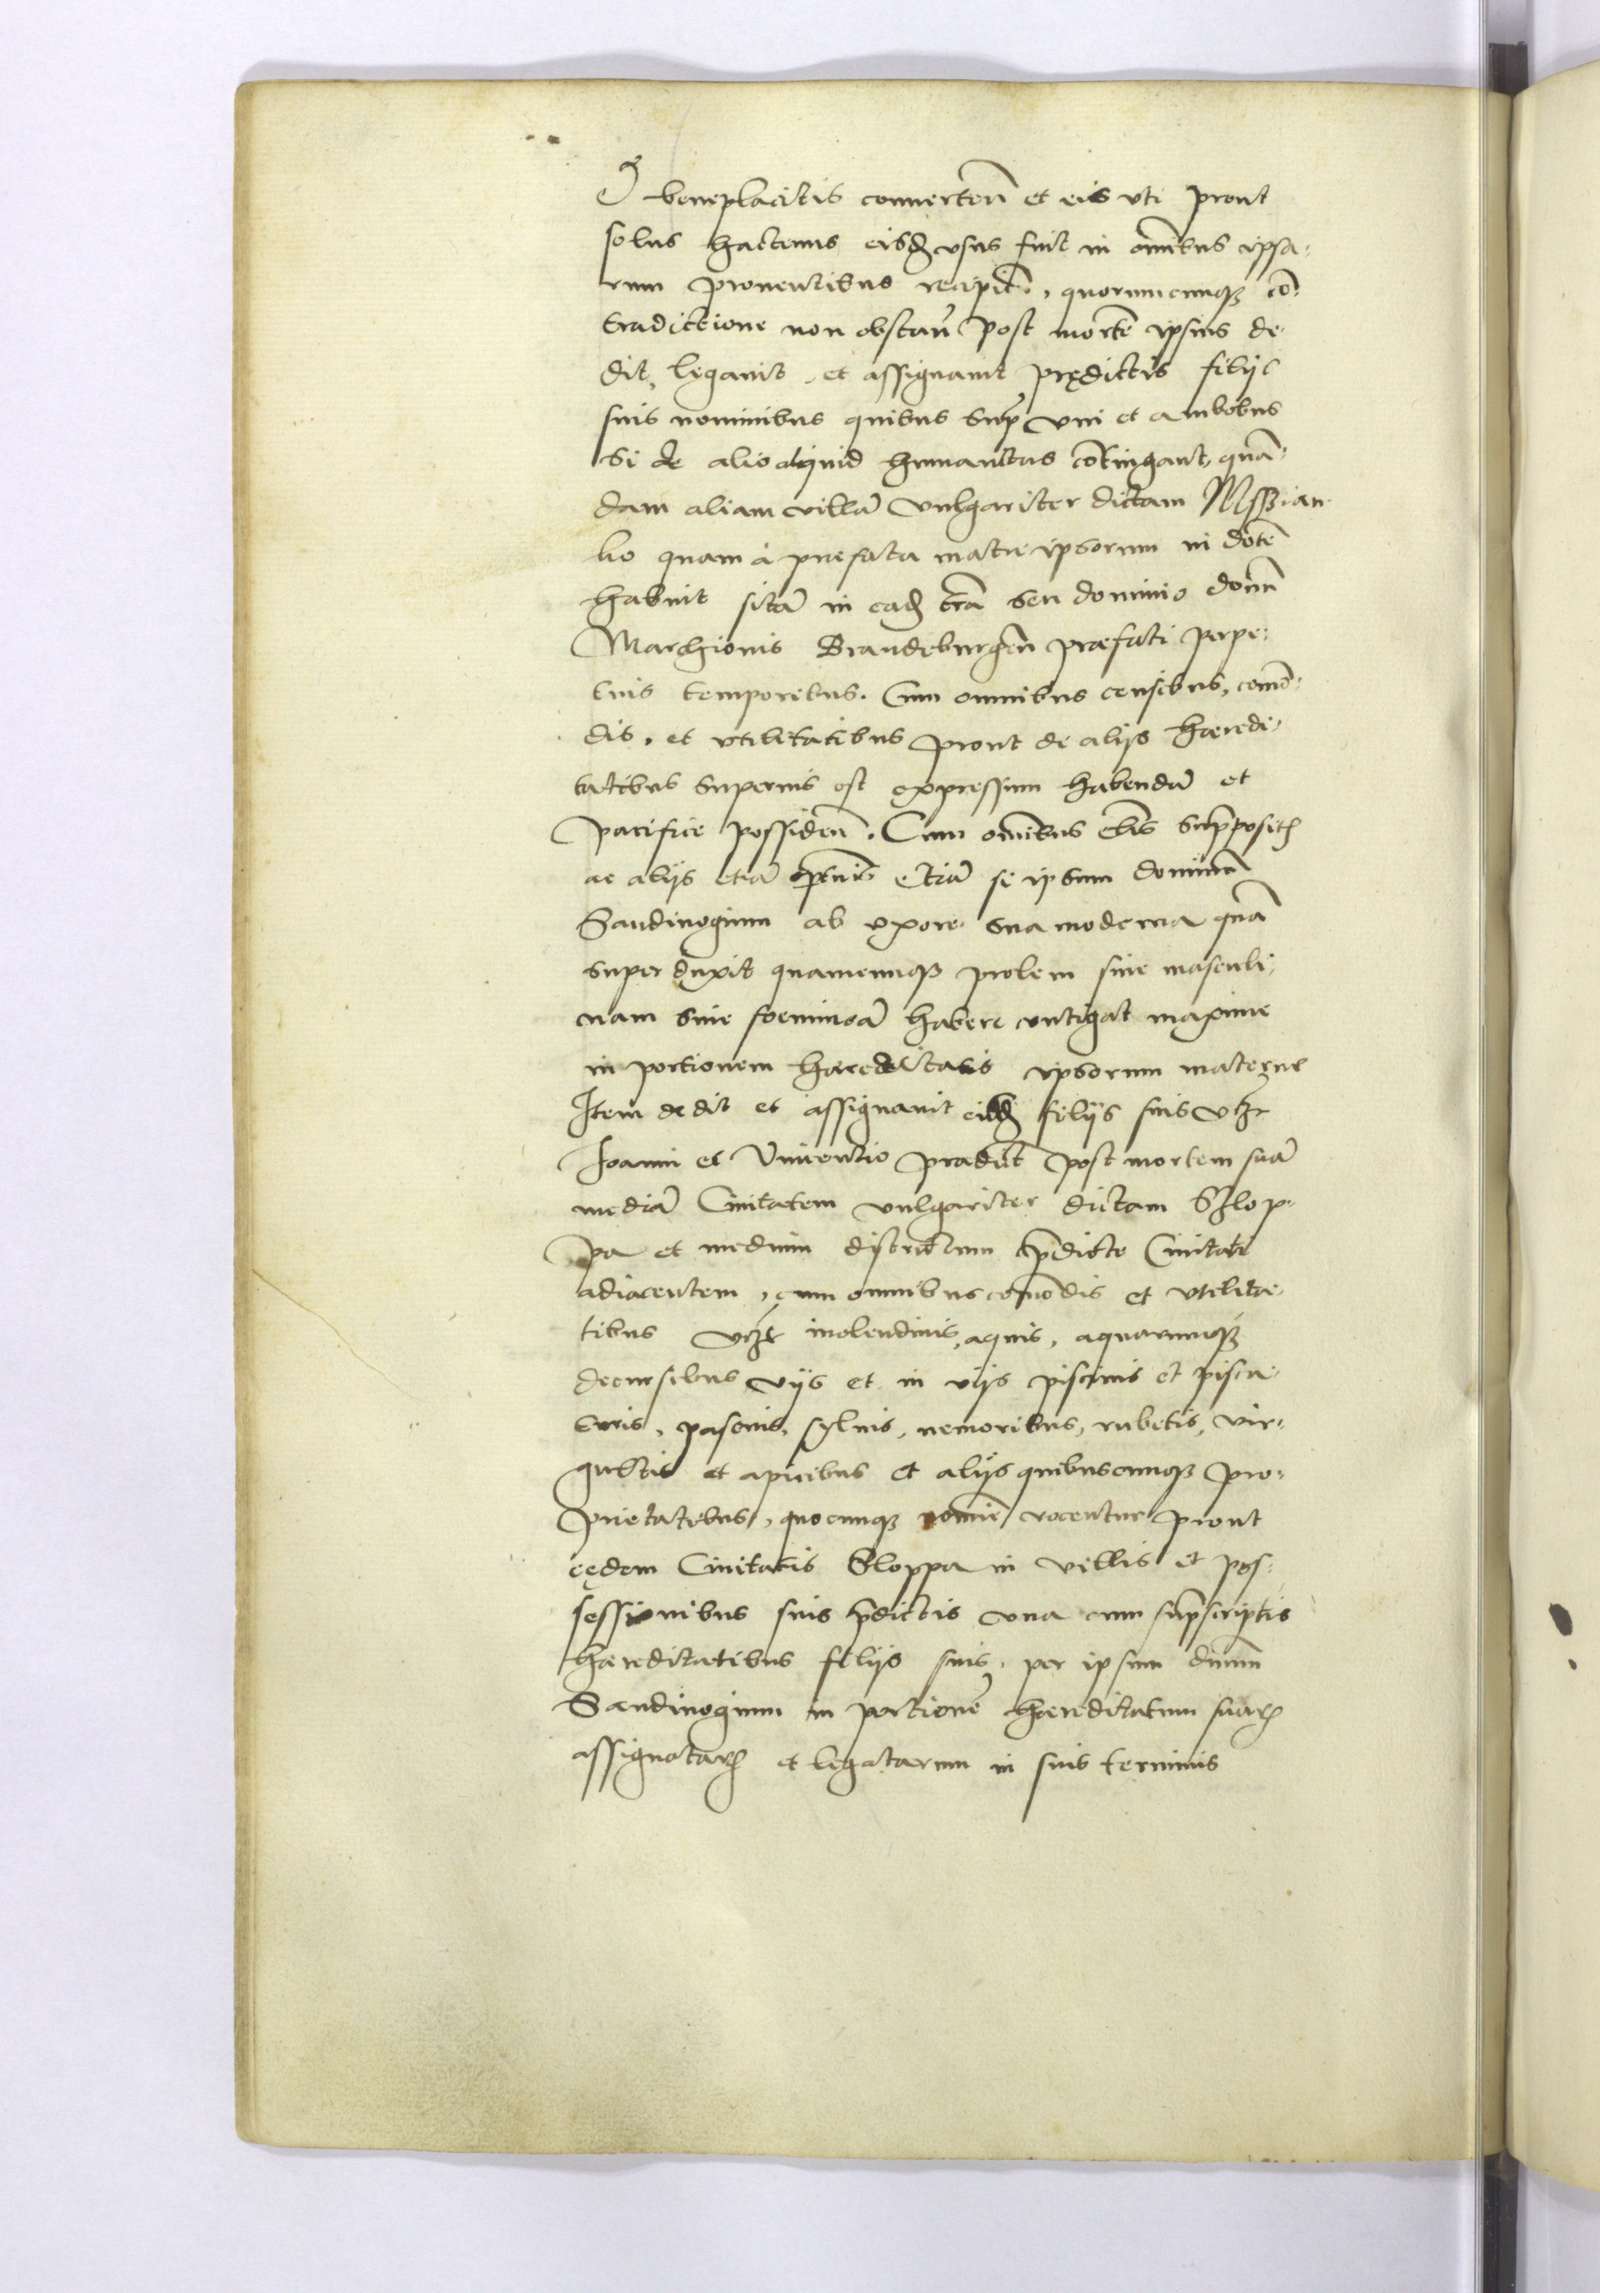 beneplacitis conuertenñ et eis vti prout
solus hactenus eisdẽ vsus fuit in omĩbus ipsa-
rum prouentibus recipit, quorumcunqȝ cõ-
tradictione non obstañ post mortẽ ipsius de-
dit, legauit, et assignauit prędictis filijs
suis nominibus quibus supᵃ vni et ambobus
si de alio aliquid humanitus cõtingant, quã-
dam aliam villã vulgariter dictam
quam à præfata matre ipsorum in dotẽ
habuit sitã in eadẽ trã seu dominio domĩ
Marchionis Brandeburgeñ præfati perpe-
tuis temporibus. Cum omnibus censibus, comõ-
dis, et vtilitatibus prout de alijs hæredi-
tatibus superius est expressum habendã et
pacifice possideñ. Cum omĩbus suprapositis
ac alijs etiã etiã si ipsum dominũ
Sandiuogium ab vxore sua moderna quã
super duxit quamcunqȝ prolem siue masculi-
nam siue foemineã habere cõtigat maxime
in portionem hæreditatis ipsorum materne
Item dedit et assignauit eisdẽ filijs suis vzt
Joanni et Vincentio prædict post mortem suã
mediã Ciuitatem vulgariter dictam Szlop-
pa et medium districtum p̃dicte Ciuitati
adiacentem, cum omnibus comodis et vtilita-
tibus vzt molendinis, aquis, aquarumqȝ
decursibus vijs et in vijs piscinis et pisca-
turis, pascuis, syluis, nemoribus, rubetis, vir-
gultis et apicibus et alijs quibuscunqȝ pro-
prietatibus, quocunqȝ nomĩe vocentur prout
eędem Ciuitatis Sloppa in villis et pos-
sessionibus suis p̃dictis vna cum sup̃scriptis
hæreditatibus filijs suis, per ipsum dñum
Sandiuogium in portionẽ hæreditatum suarꝝ
assignatarꝝ et legatarum in suis terminis